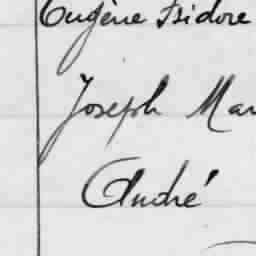 Eugène Isidore
Joseph Mar
André